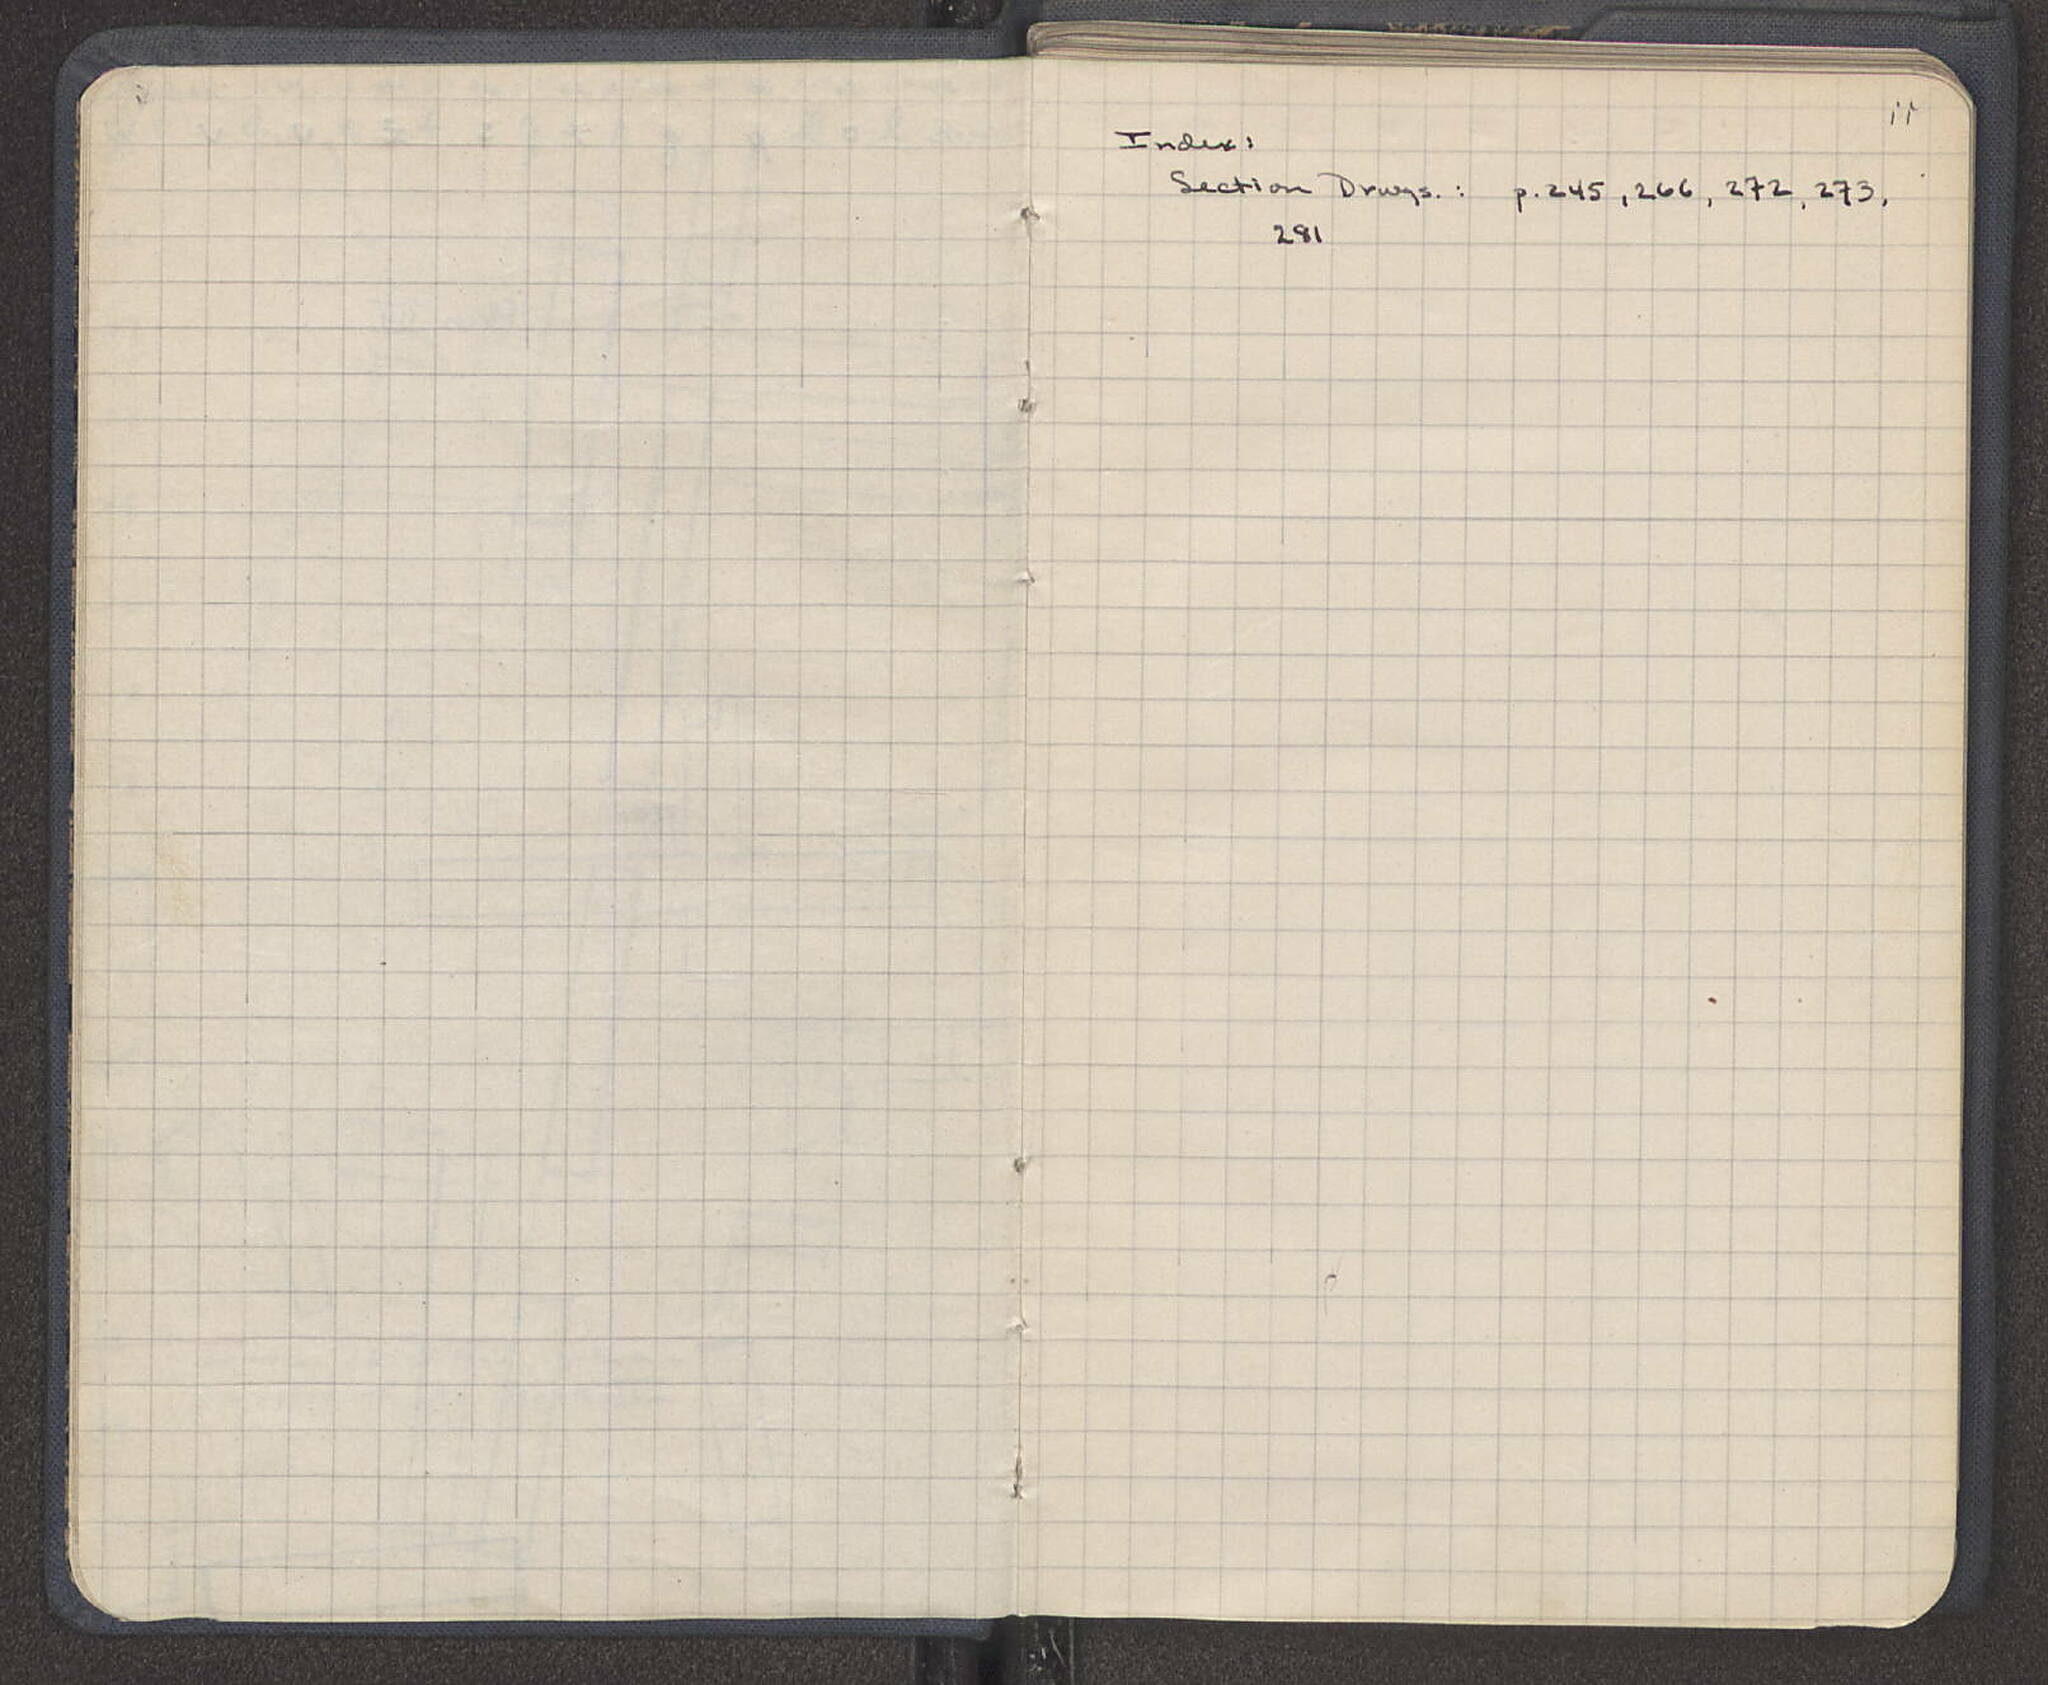 i
ii
Index:
Section Drwgs. : p. 245, 266, 272, 273,
281